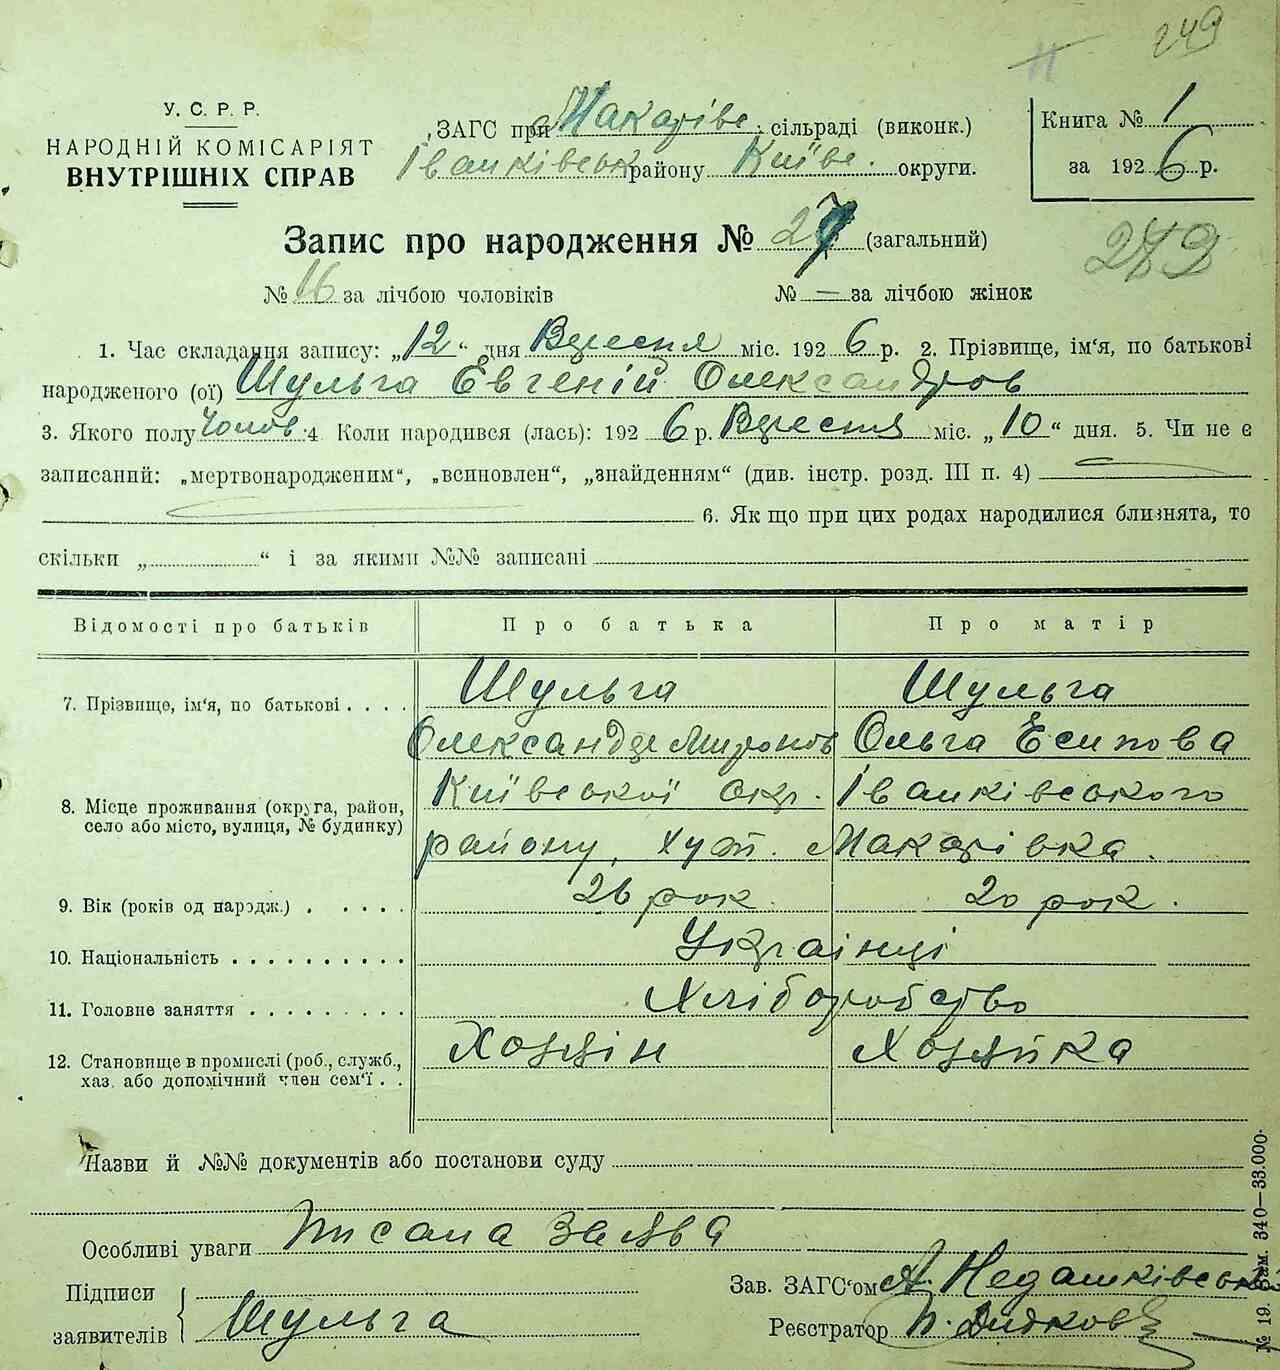 249
У. С. Р. Р.
НАРОДНІЙ КОМІСАРІЯТ
ВНУТРІШНІХ СПРАВ
ЗАГС при Макарівс. сільраді (виконк.)
Іванківськ району Київс. округи.
Книга № 1
за 1926 р.
Запис про народження № 27 (загальний)
249
№ 16 за лічбою чоловіків № — за лічбою жінок
1. Час складання запису: „12“ дня Вересня міс. 1926 р. 2. Прізвище, ім‘я, по батькові
народженого (ої) Шульга Евгеній Олександров
3. Якого полу Чолов. 4 Коли народився (лась): 1926 р. Вересня міс. „10“ дня. 5. Чи не є
записаний: „мертвонародженим“, „всиновлен“, „знайденням“ (див. інстр. розд. III п. 4)
6. Як що при цих родах народилися близнята, то
скільки „ “ і за якими №№ записані
Відомості про батьків Про батька Про матір
7. Прізвище, ім‘я, по батькові . . . . Шульга Шульга
Олександр Миронов Ольга Есипова
8. Місце проживання (округа, район, село або місто, вулиця, № будинку) Київської окр. Іванківського
району, Хут. Макарівка.
9. Вік (років од народж.) . . . . . 26 рок. 20 рок.
10. Національність . . . . . . . . . . Українці
11. Головне заняття . . . . . . . . . Хліборобство
12. Становище в промислі (роб., служб., Хозяін Хозяйка
хаз. або допомічний член сем‘ї . .
Назви й №№ документів або постанови суду
Особливі уваги Писана заява
Підписи
заявителів Шульга
Зав. ЗАГС‘ом А. Недашківськ
Реєстратор
№ 19. Зам. 340—33.000.